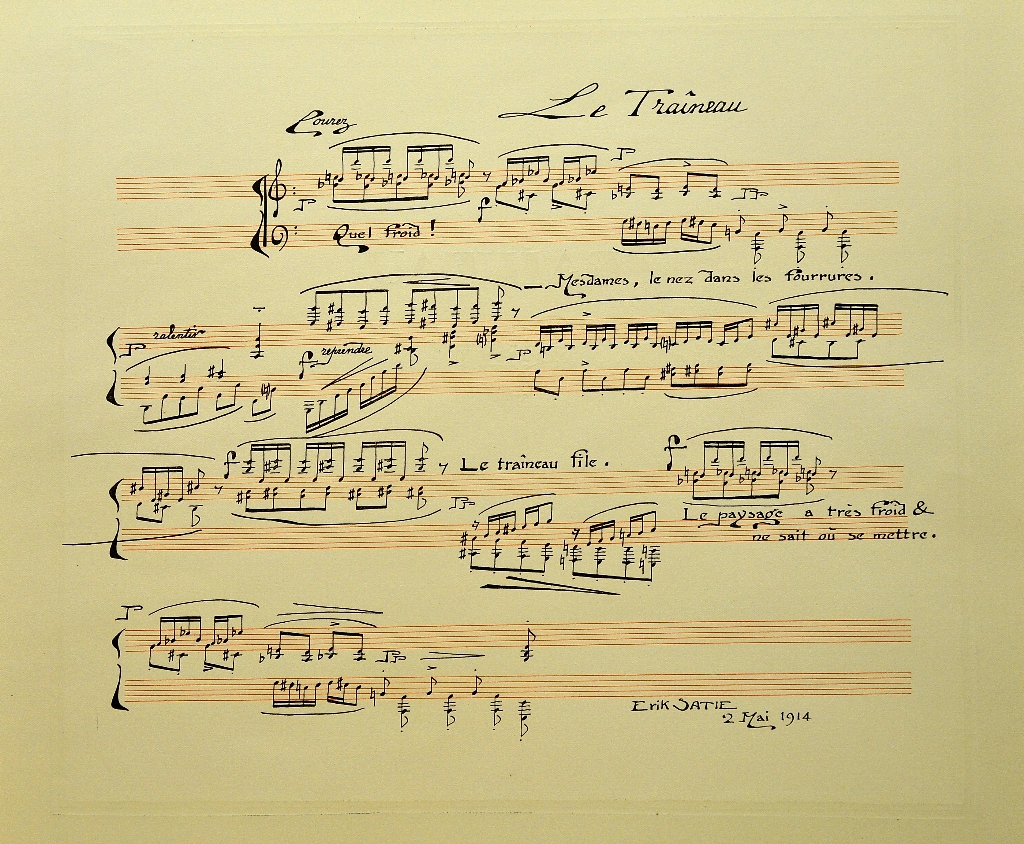 Le Traîneau
Courez
P
f
P
PP
Quel froid !
Mesdames, le nez dans les fourrures.
P
ralentir
f
reprendre
P
f
Le traîneau file.
PP
f
Le paysage a très froid &
ne sait où se mettre.
P
PP
Erik SATIE
2 Mai 1914